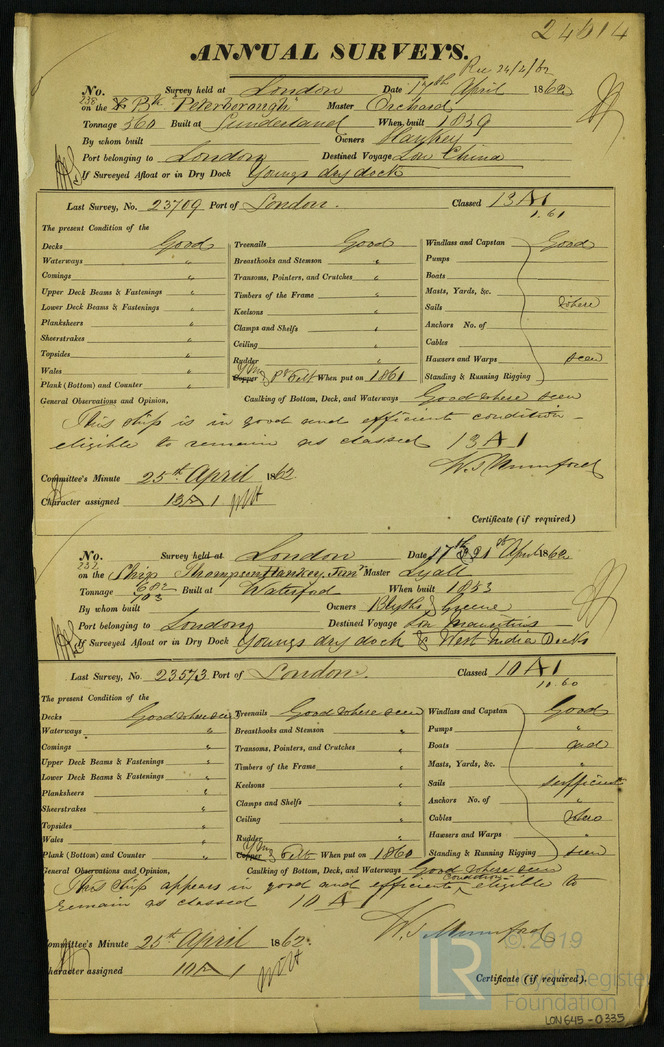 24614
ANNUAL SURVEYS.
Rec 24/4/62
No. 238 Survey held at London Date 17th April 1862
on the Bk "Peterborough" Master Orchard
Tonnage 360 Built at Sunderland When built 1839
By whom built Owners Hankey
Port belonging to London Destined Voyage Lon China
If Surveyed Afloat or in Dry Dock Youngs dry dock
Last Survey, No. 23709 Port of London. Classed 13 A 1
1.61
The present Condition of the
Decks Good Treenails Good Windlass and Capstan Good
Waterways " Breasthooks and Stemson " Pumps
Comings " Transoms, Pointers, and Crutches " Boats
Upper Deck Beams & Fastenings " Timbers of the Frame " Masts, Yards, &c.
Lower Deck Beams & Fastenings " Keelsons " Sails where
Planksheers " Clamps and Shelfs " Anchors No. of
Sheerstrakes " Ceiling " Cables
Topsides " Rudder " Hawsers and Warps seen
Wales " Copper Y M & Felt When put on 1861 Standing & Running Rigging
Plank (Bottom) and Counter " Caulking of Bottom, Deck, and Waterways Good where seen
General Observations and Opinion,
This ship is in good and efficient condition
eligible to remain as classed 13 A 1
W. J. Mumford
Committee's Minute 25th April 1862.
Character assigned 13 A 1
Certificate (if required)
No. 232 Survey held at London Date 17th & 21st April 1862
on the Ship Thompson Hankey, Junr Master Lyall
Tonnage 682 703 Built at Waterford When built 1853
By whom built Owners Blyths & Greene
Port belonging to London Destined Voyage Lon Mauritius
If Surveyed Afloat or in Dry Dock Youngs dry dock & West India Docks
Last Survey, No. 23573 Port of London. Classed 10 A 1
10.60
The present Condition of the
Decks Good where seen Treenails Good where seen Windlass and Capstan Good
Waterways " Breasthooks and Stemson " Pumps "
Comings " Transoms, Pointers, and Crutches " Boats and
Upper Deck Beams & Fastenings " Timbers of the Frame " Masts, Yards, &c. "
Lower Deck Beams & Fastenings " Keelsons " Sails sufficient
Planksheers " Clamps and Shelfs " Anchors No. of "
Sheerstrakes " Ceiling " Cables where
Topsides " Rudder " Hawsers and Warps "
Wales " Copper Y M & Felt When put on 1860 Standing & Running Rigging seen
Plank (Bottom) and Counter " Caulking of Bottom, Deck, and Waterways Good where seen
General Observations and Opinion,
This ship appears in good and efficient condition eligible to
remain as classed 10 A 1
W. J. Mumford
Committee's Minute 25th April 1862.
Character assigned 10 A 1
Certificate (if required).
LR © 2019
Lloyd's Register
Foundation
LON645-0335